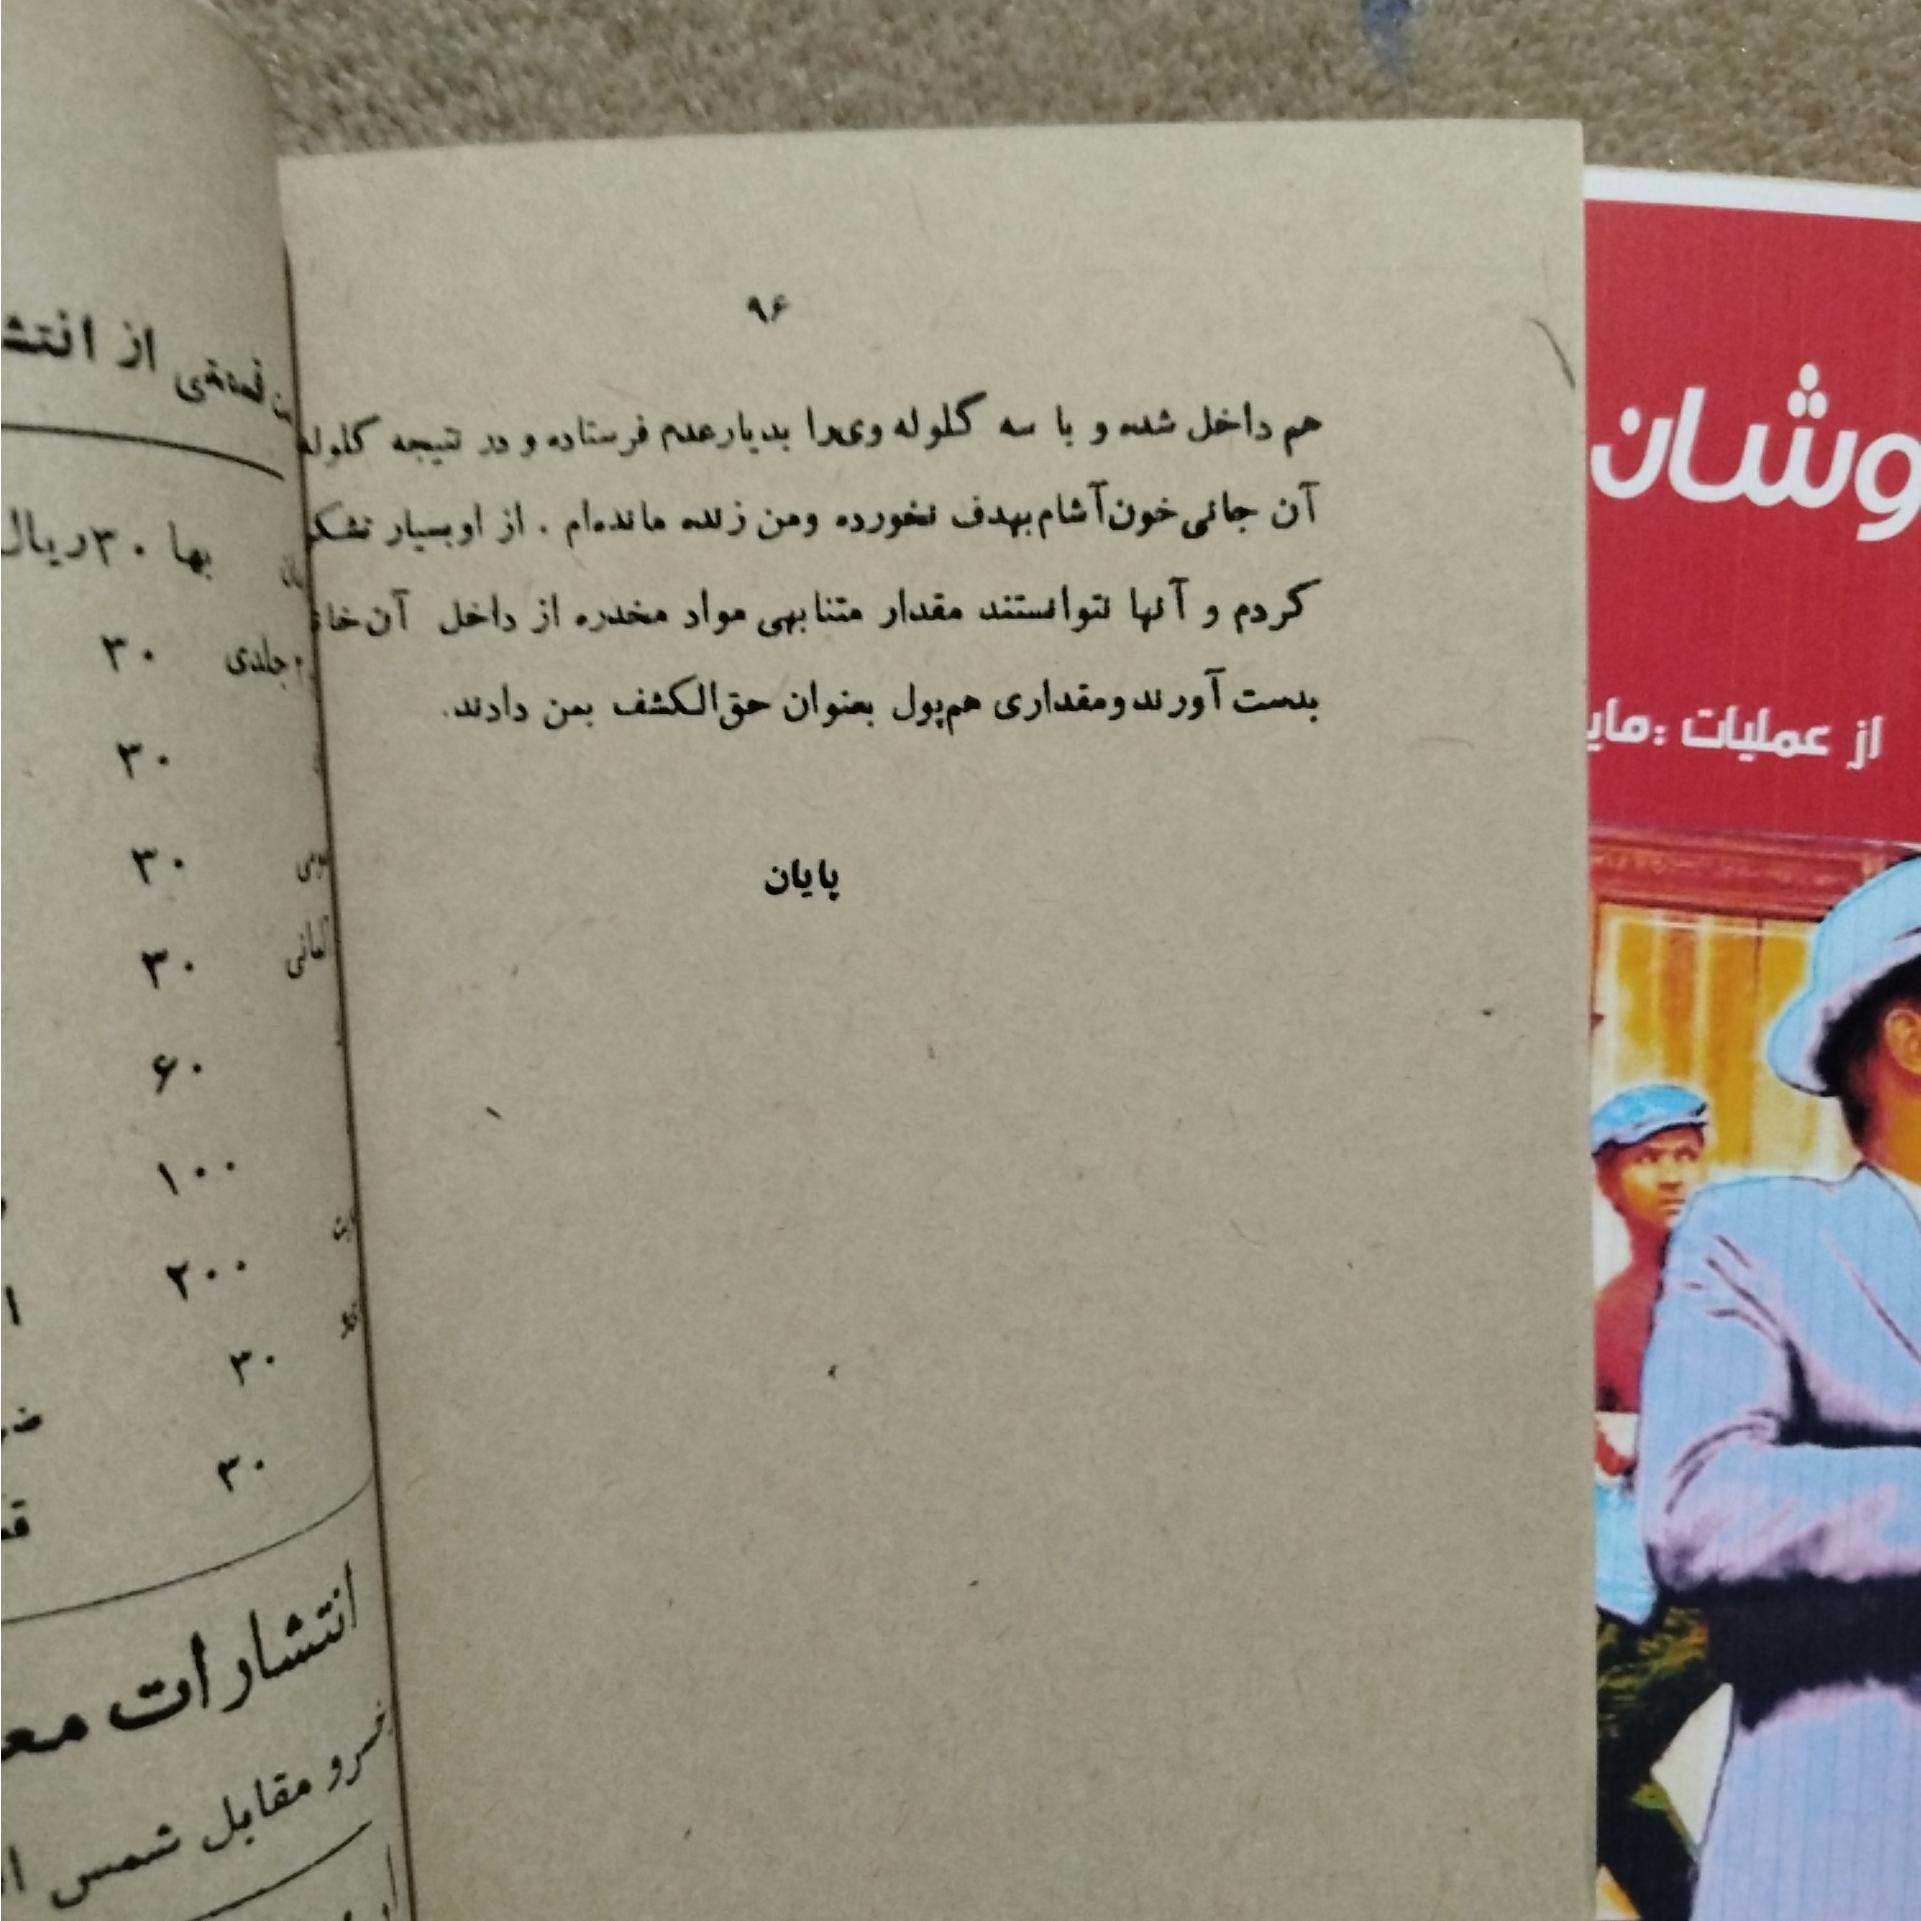 ۹۶
هم داخل شده و با سه گلوله وی‌را بدیارعدم فرستاده و در نتیجه گلوله
آن جانی خون‌آشام بهدف نخورده ومن زنده مانده‌ام . از اوبسیار تشکر
کردم و آنها توانستند مقدار متنابهی مواد مخدره از داخل آن خانه
بدست آورند ومقداری هم‌پول بعنوان حق‌الکشف بمن دادند.
پایان
وشان
از عملیات :
از
بها ۳۰ ریال
جلدی ۳۰
۳۰
۳۰
۳۰
۶۰
۱۰۰
۲۰۰
۳۰
۳۰
انتشارات
مقابل شمس